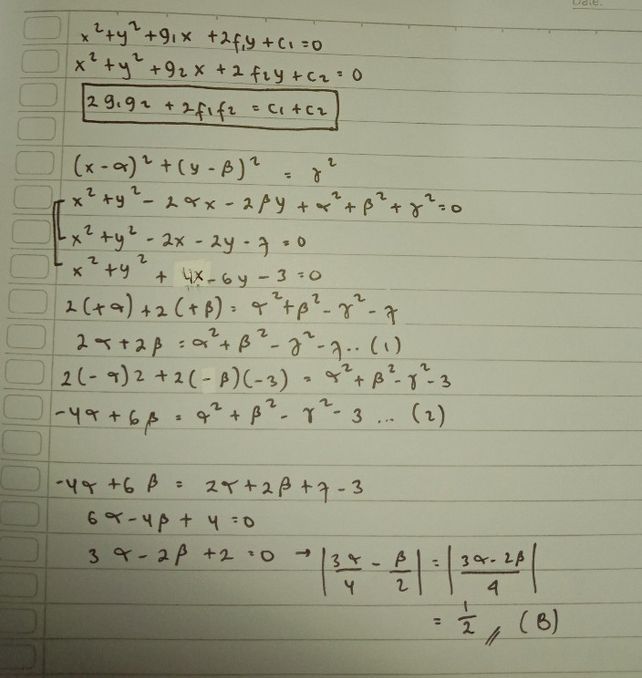 Date.
x²+y²+g₁x +2f₁y+c₁=0
x²+y²+g₂x+2f₂y+c₂=0
2g₁g₂ + 2f₁f₂ = c₁+c₂
(x-α)²+(y-β)² = γ²
x²+y²-2αx-2βy+α²+β²+γ²=0
x²+y²-2x-2y-7=0
x²+y²+4x-6y-3=0
2(+α)+2(+β)=α²+β²-γ²-7
2α+2β=α²+β²-γ²-7..(1)
2(-α)2+2(-β)(-3)=α²+β²-γ²-3
-4α+6β=α²+β²-γ²-3...(2)
-4α+6β=2α+2β+7-3
6α-4β+4=0
3α-2β+2=0→|3α/4-β/2|=|3α-2β/4|
=1/2,, (B)